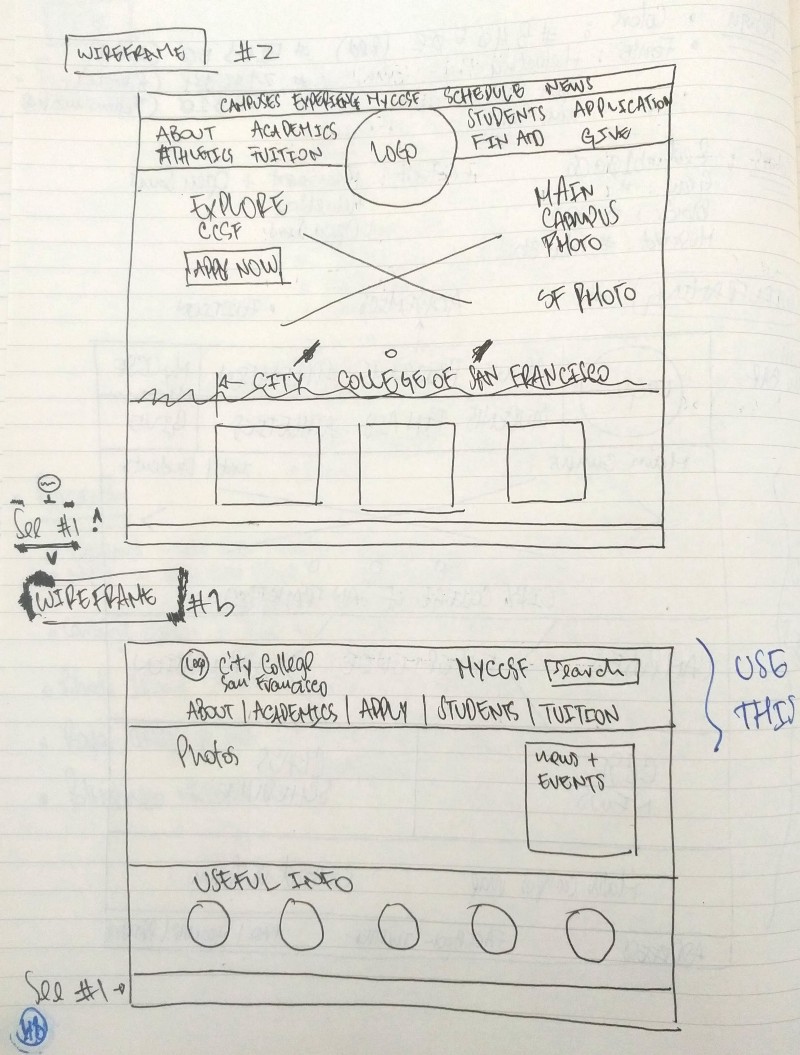 WIREFRAME #2
CAMPUSES EXPERIENCE MYCCSF SCHEDULE NEWS
ABOUT ACADEMICS
ATHLETICS TUITION
LOGO
STUDENTS APPLICATION
FIN AID GIVE
EXPLORE
CCSF
APPLY NOW
MAIN
CAMPUS
PHOTO
SF PHOTO
CITY COLLEGE OF SAN FRANCISCO
See #1
WIREFRAME #3
Logo City College
San Francisco
MYCCSF Search
ABOUT | ACADEMICS | APPLY | STUDENTS | TUITION
USE
THIS
Photos
news +
EVENTS
USEFUL INFO
See #1